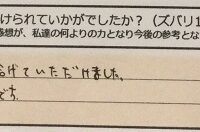 けられていかがでしたか？（ズバリ1
感想が、私達の何よりの力となり今後の参考とな
げていただけました。
です。